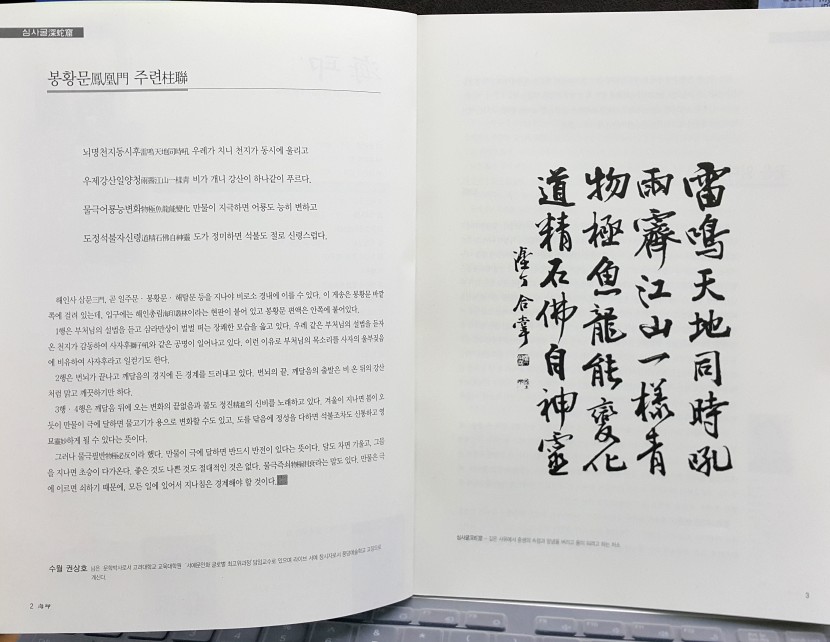 심사굴深蛇窟
봉황문鳳凰門 주련柱聯
뇌명천지동시후雷鳴天地同時吼 우레가 치니 천지가 동시에 울리고
우제강산일양청雨霽江山一樣青 비가 개니 강산이 하나같이 푸르다.
물극어룡능변화物極魚龍能變化 만물이 지극하면 어룡도 능히 변하고
도정석불자신령道精石佛自神靈 도가 정미하면 석불도 절로 신령스럽다.
해인사 삼문三門, 곧 일주문·봉황문·해탈문 등을 지나야 비로소 경내에 이를 수 있다. 이 게송은 봉황문 바깥
쪽에 걸려 있는데, 입구에는 해인총림海印叢林이라는 현판이 붙어 있고 봉황문 편액은 안쪽에 붙어있다.
1행은 부처님의 설법을 듣고 삼라만상이 벌벌 떠는 장쾌한 모습을 읊고 있다. 우레 같은 부처님의 설법을 듣자
온 천지가 감동하여 사자후獅子吼와 같은 공명이 일어나고 있다. 이런 이유로 부처님의 목소리를 사자의 울부짖음
에 비유하여 사자후라고 일컫기도 한다.
2행은 번뇌가 끝나고 깨달음의 경지에 든 경계를 드러내고 있다. 번뇌의 끝, 깨달음의 출발은 비 온 뒤의 강산
처럼 맑고 깨끗하기만 하다.
3행·4행은 깨달음 뒤에 오는 변화의 끝없음과 불도 정진精進의 신비를 노래하고 있다. 겨울이 지나면 봄이 오
듯이 만물이 극에 달하면 물고기가 용으로 변화할 수도 있고, 도를 닦음에 정성을 다하면 석불조차도 신통하고 영
묘靈妙하게 될 수 있다는 뜻이다.
그러나 물극필반物極必反이라 했다. 만물이 극에 달하면 반드시 반전이 있다는 뜻이다. 달도 차면 기울고, 그믐
을 지나면 초승이 다가온다. 좋은 것도 나쁜 것도 절대적인 것은 없다. 물극즉쇠物極則衰라는 말도 있다. 만물은 극
에 이르면 쇠하기 때문에, 모든 일에 있어서 지나침은 경계해야 할 것이다.
수월 권상호
2
雷鳴天地同時吼
雨霽江山一樣青
物極魚龍能變化
道精石佛自神靈
合掌
심사굴深蛇窟
3